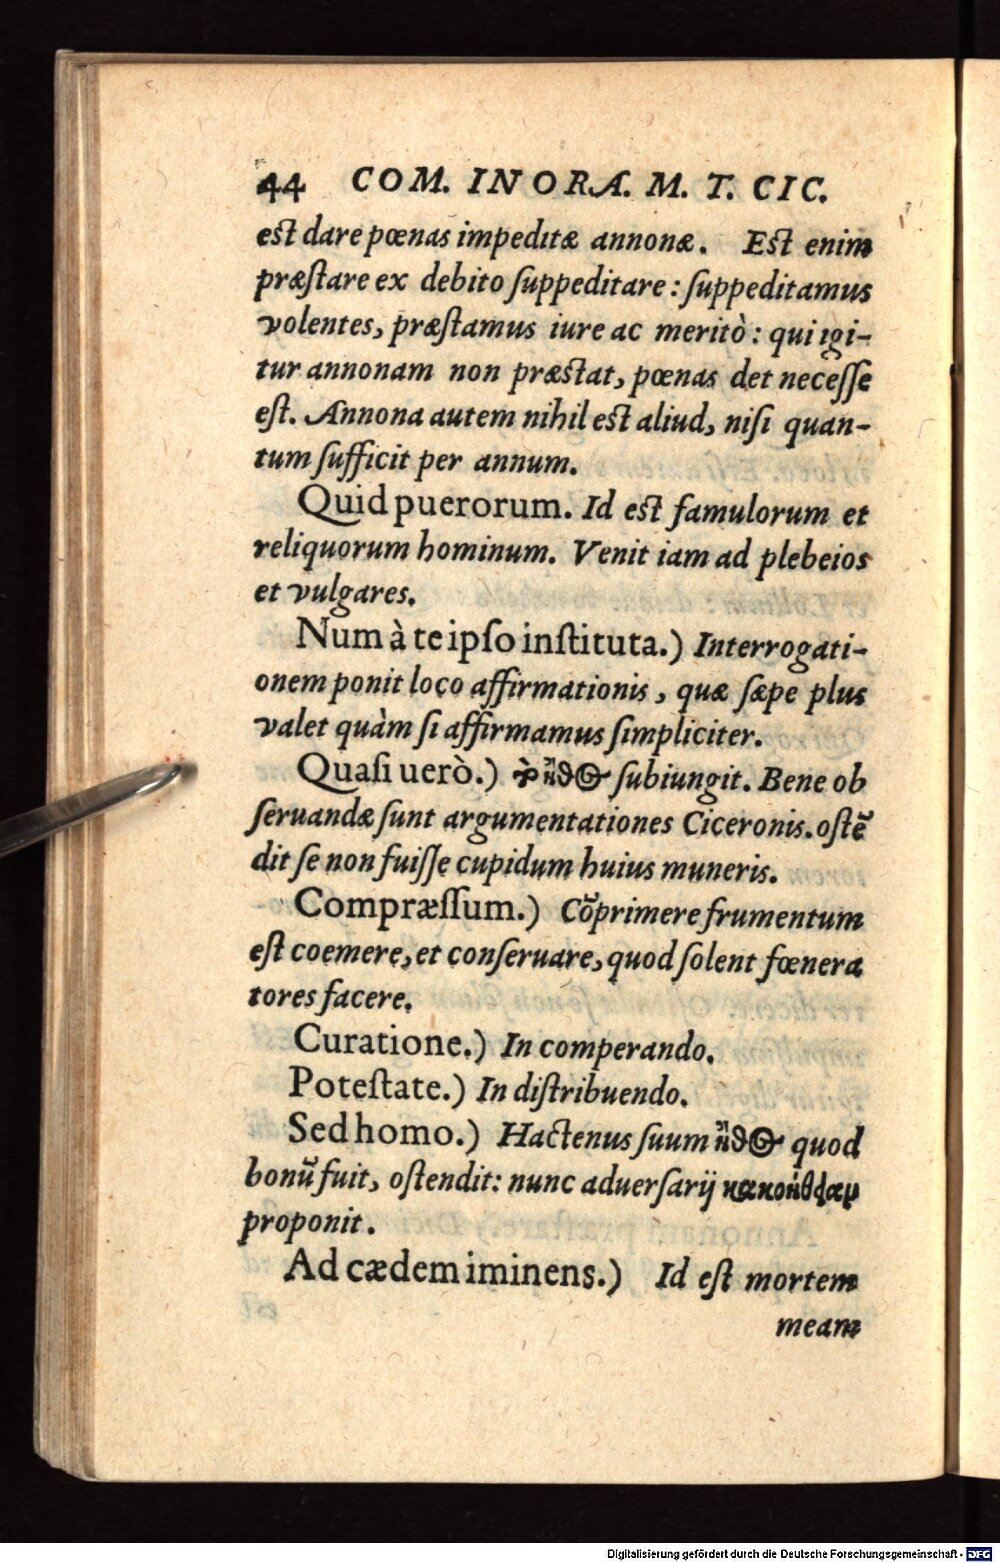 44 COM. IN ORA. M. T. CIC.
est dare pœnas impeditæ annonæ. Est enim
præstare ex debito suppeditare: suppeditamus
volentes, præstamus iure ac meritò: qui igi-
tur annonam non præstat, pœnas det necesse
est. Annona autem nihil est aliud, nisi quan-
tum sufficit per annum.
Quid puerorum. Id est famulorum et
reliquorum hominum. Venit iam ad plebeios
et vulgares.
Num à te ipso instituta.) Interrogati-
onem ponit loco affirmationis, quæ sæpe plus
valet quàm si affirmamus simpliciter.
Quasi uerò.) subiungit. Bene ob
seruandæ sunt argumentationes Ciceronis. ostē
dit se non fuisse cupidum huius muneris.
Compræssum.) Cōprimere frumentum
est coemere, et conseruare, quod solent fœnera
tores facere.
Curatione.) In comperando.
Potestate.) In distribuendo.
Sed homo.) Hactenus suum quod
bonū fuit, ostendit: nunc aduersarij
proponit.
Ad cædem iminens.) Id est mortem
meam
Digitalisierung gefördert durch die Deutsche Forschungsgemeinschaft - DFG